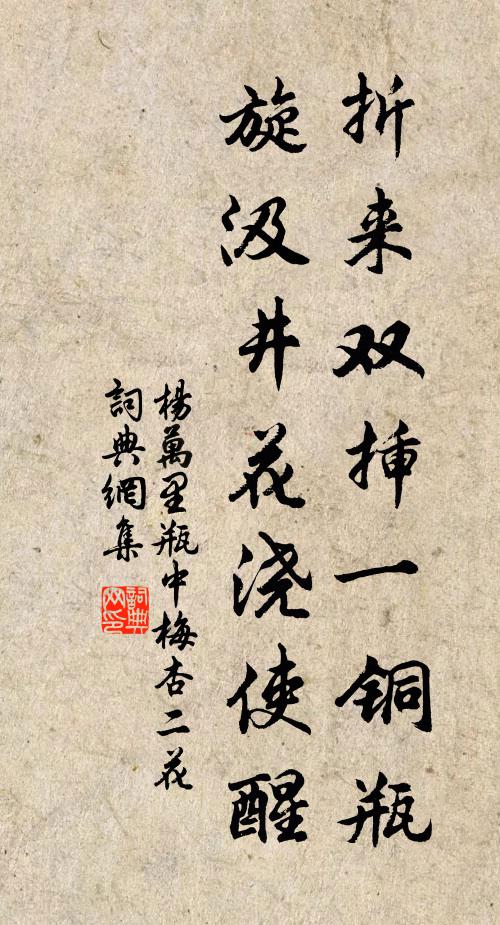 折来双插一铜瓶
旋汲井花浇使醒
楊萬里瓶中梅杏二花
詞典網集
詞典网印